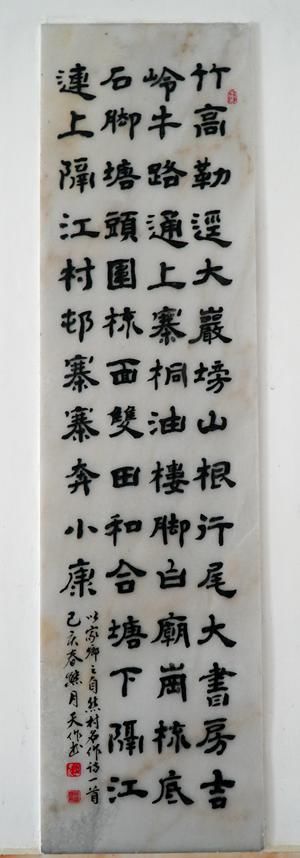 竹高勒逕大巖塝山根行尾大書房吉
岭牛路通上寨桐油樓脚白廟崗栋底
石脚塘頭圍栋面雙田和合塘下隔江
連上隔江村邨寨寨奔小康
以家鄉之自然村名作詩一首
己亥春月天作书